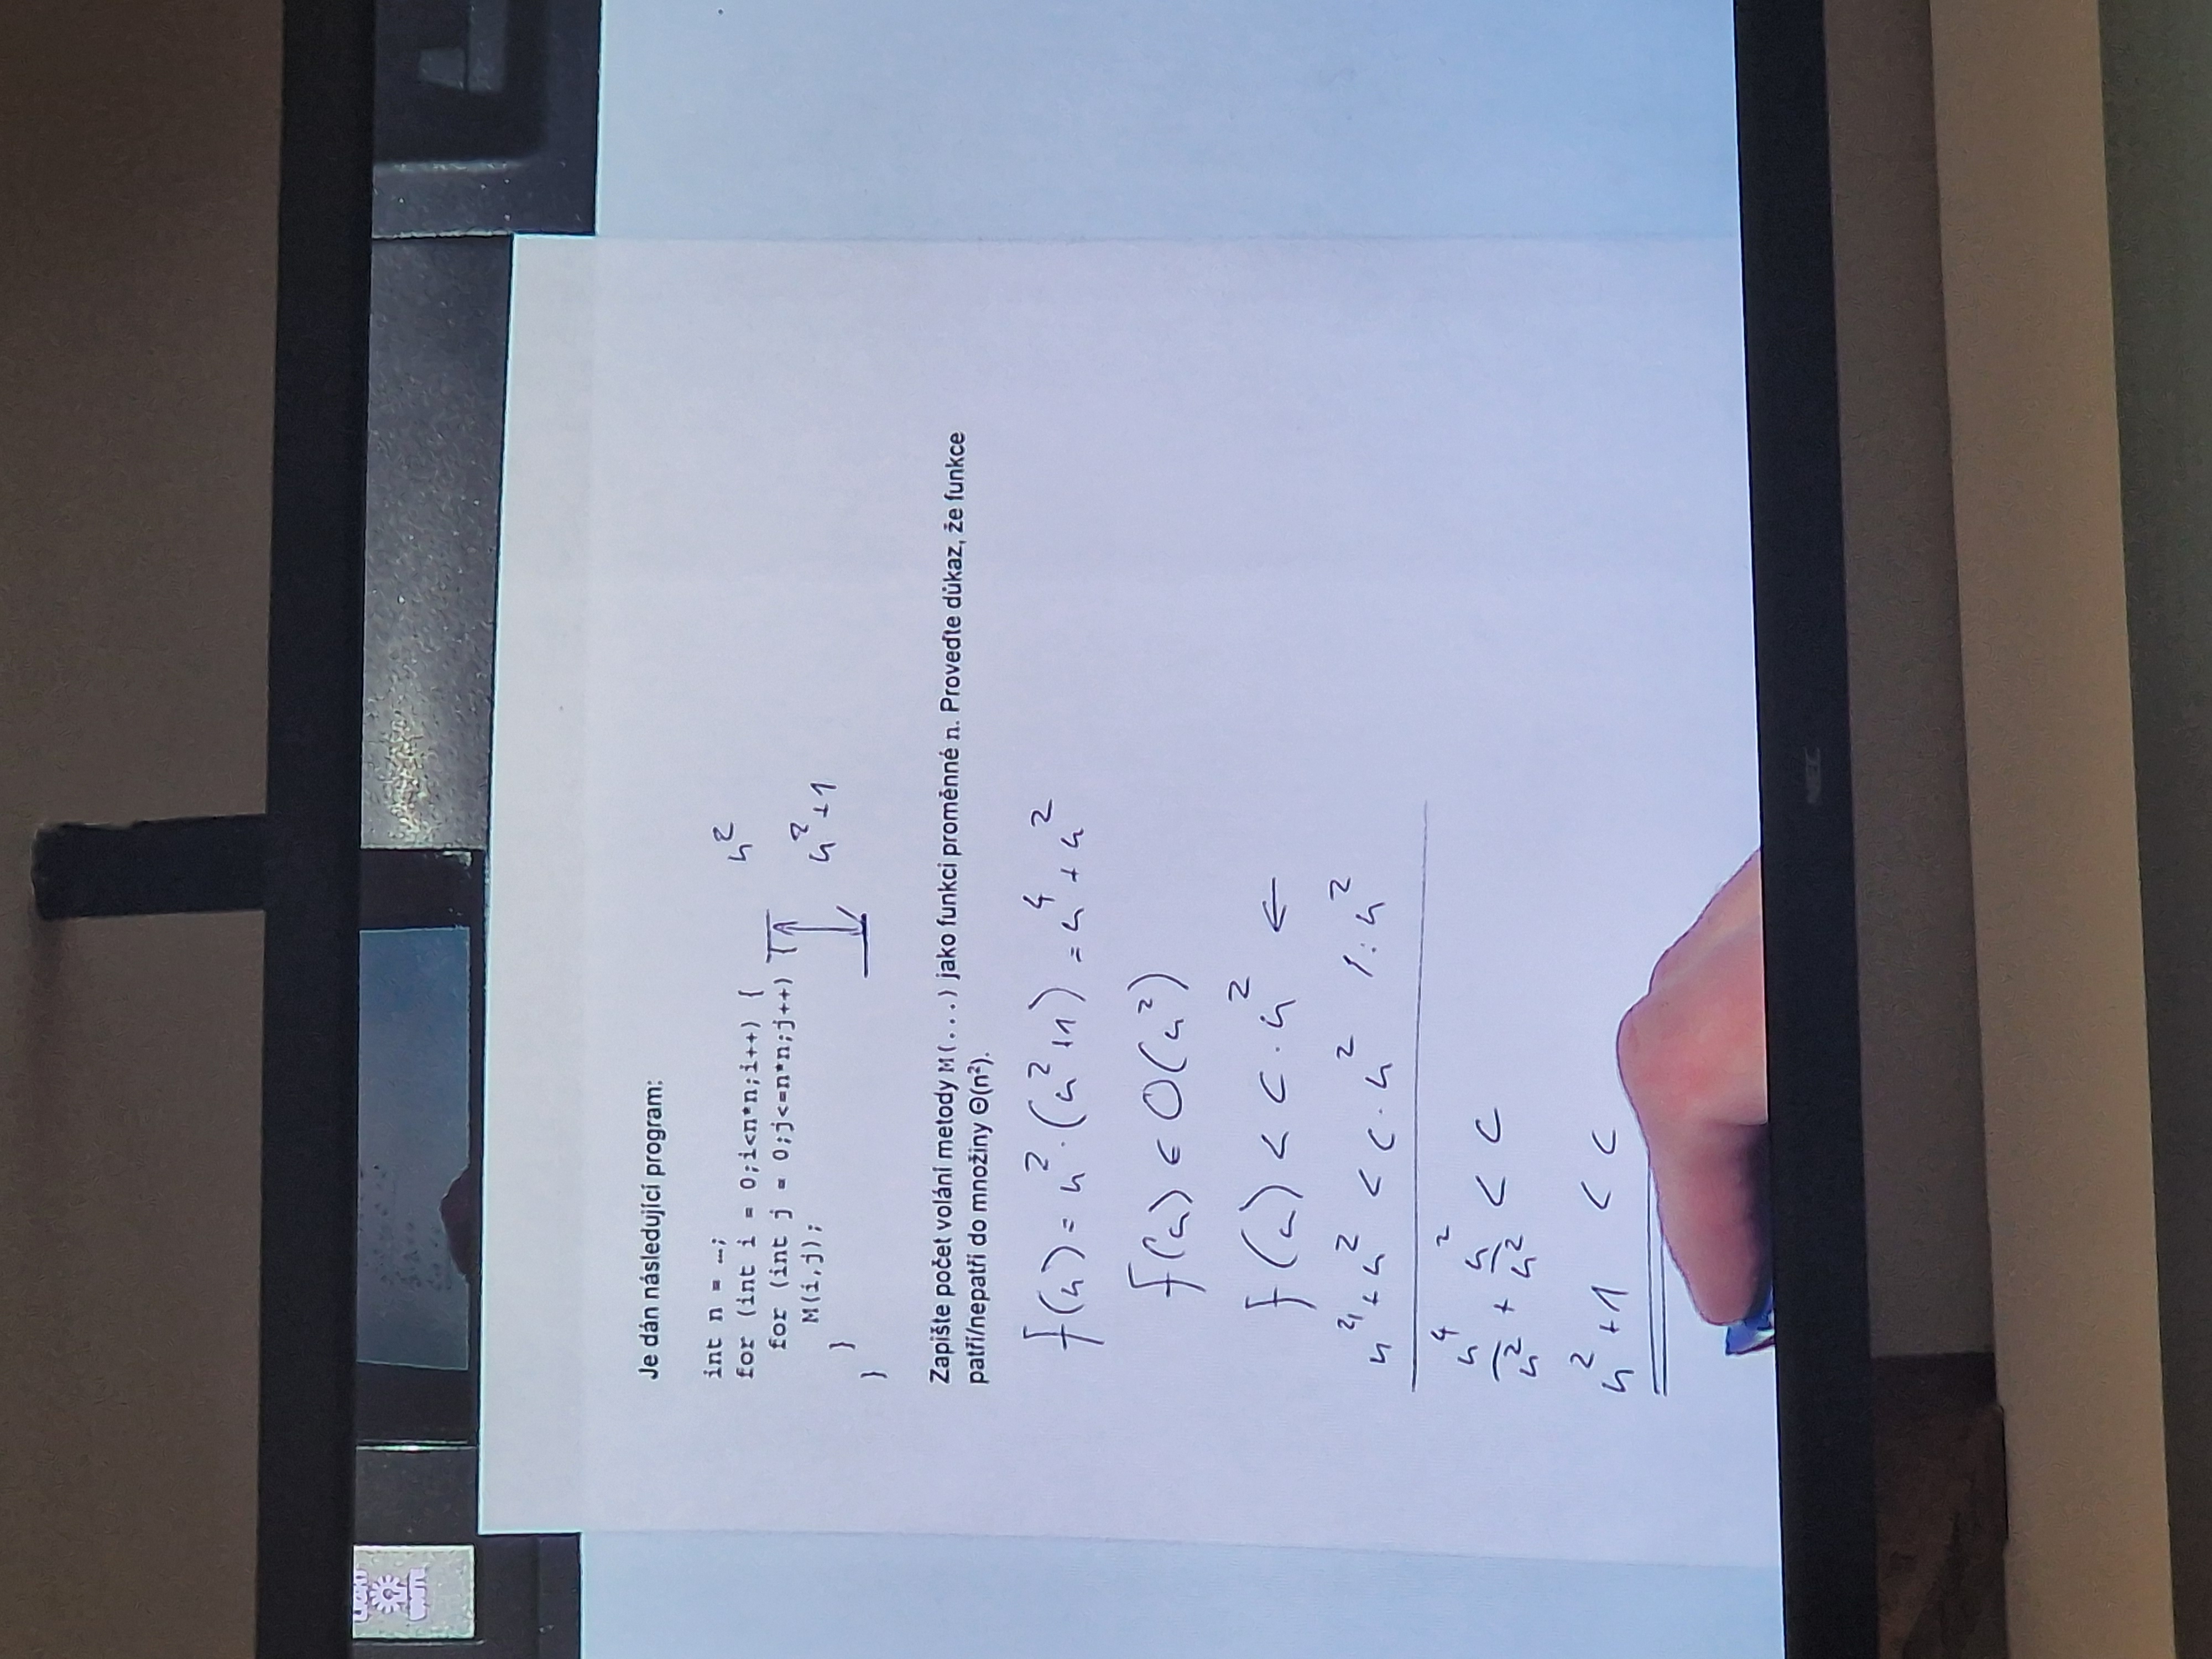 LIGHT
WHITE
Je dán následující program:
int n = …;
for (int i = 0;i<n*n;i++) {
n²
for (int j = 0;j<=n*n;j++) {
M(i,j);
n²+1
}
}
Zapište počet volání metody M(...) jako funkci proměnné n. Proveďte důkaz, že funkce
patří/nepatří do množiny Θ(n²).
f(n) = n² · (n²+1) = n⁴ + n²
f(n) ∈ O(n²)
f(n) < c · n² ←
n⁴ + n² < c · n² /: n²
n⁴/n² + n²/n² < c
n² + 1 < c
NEC